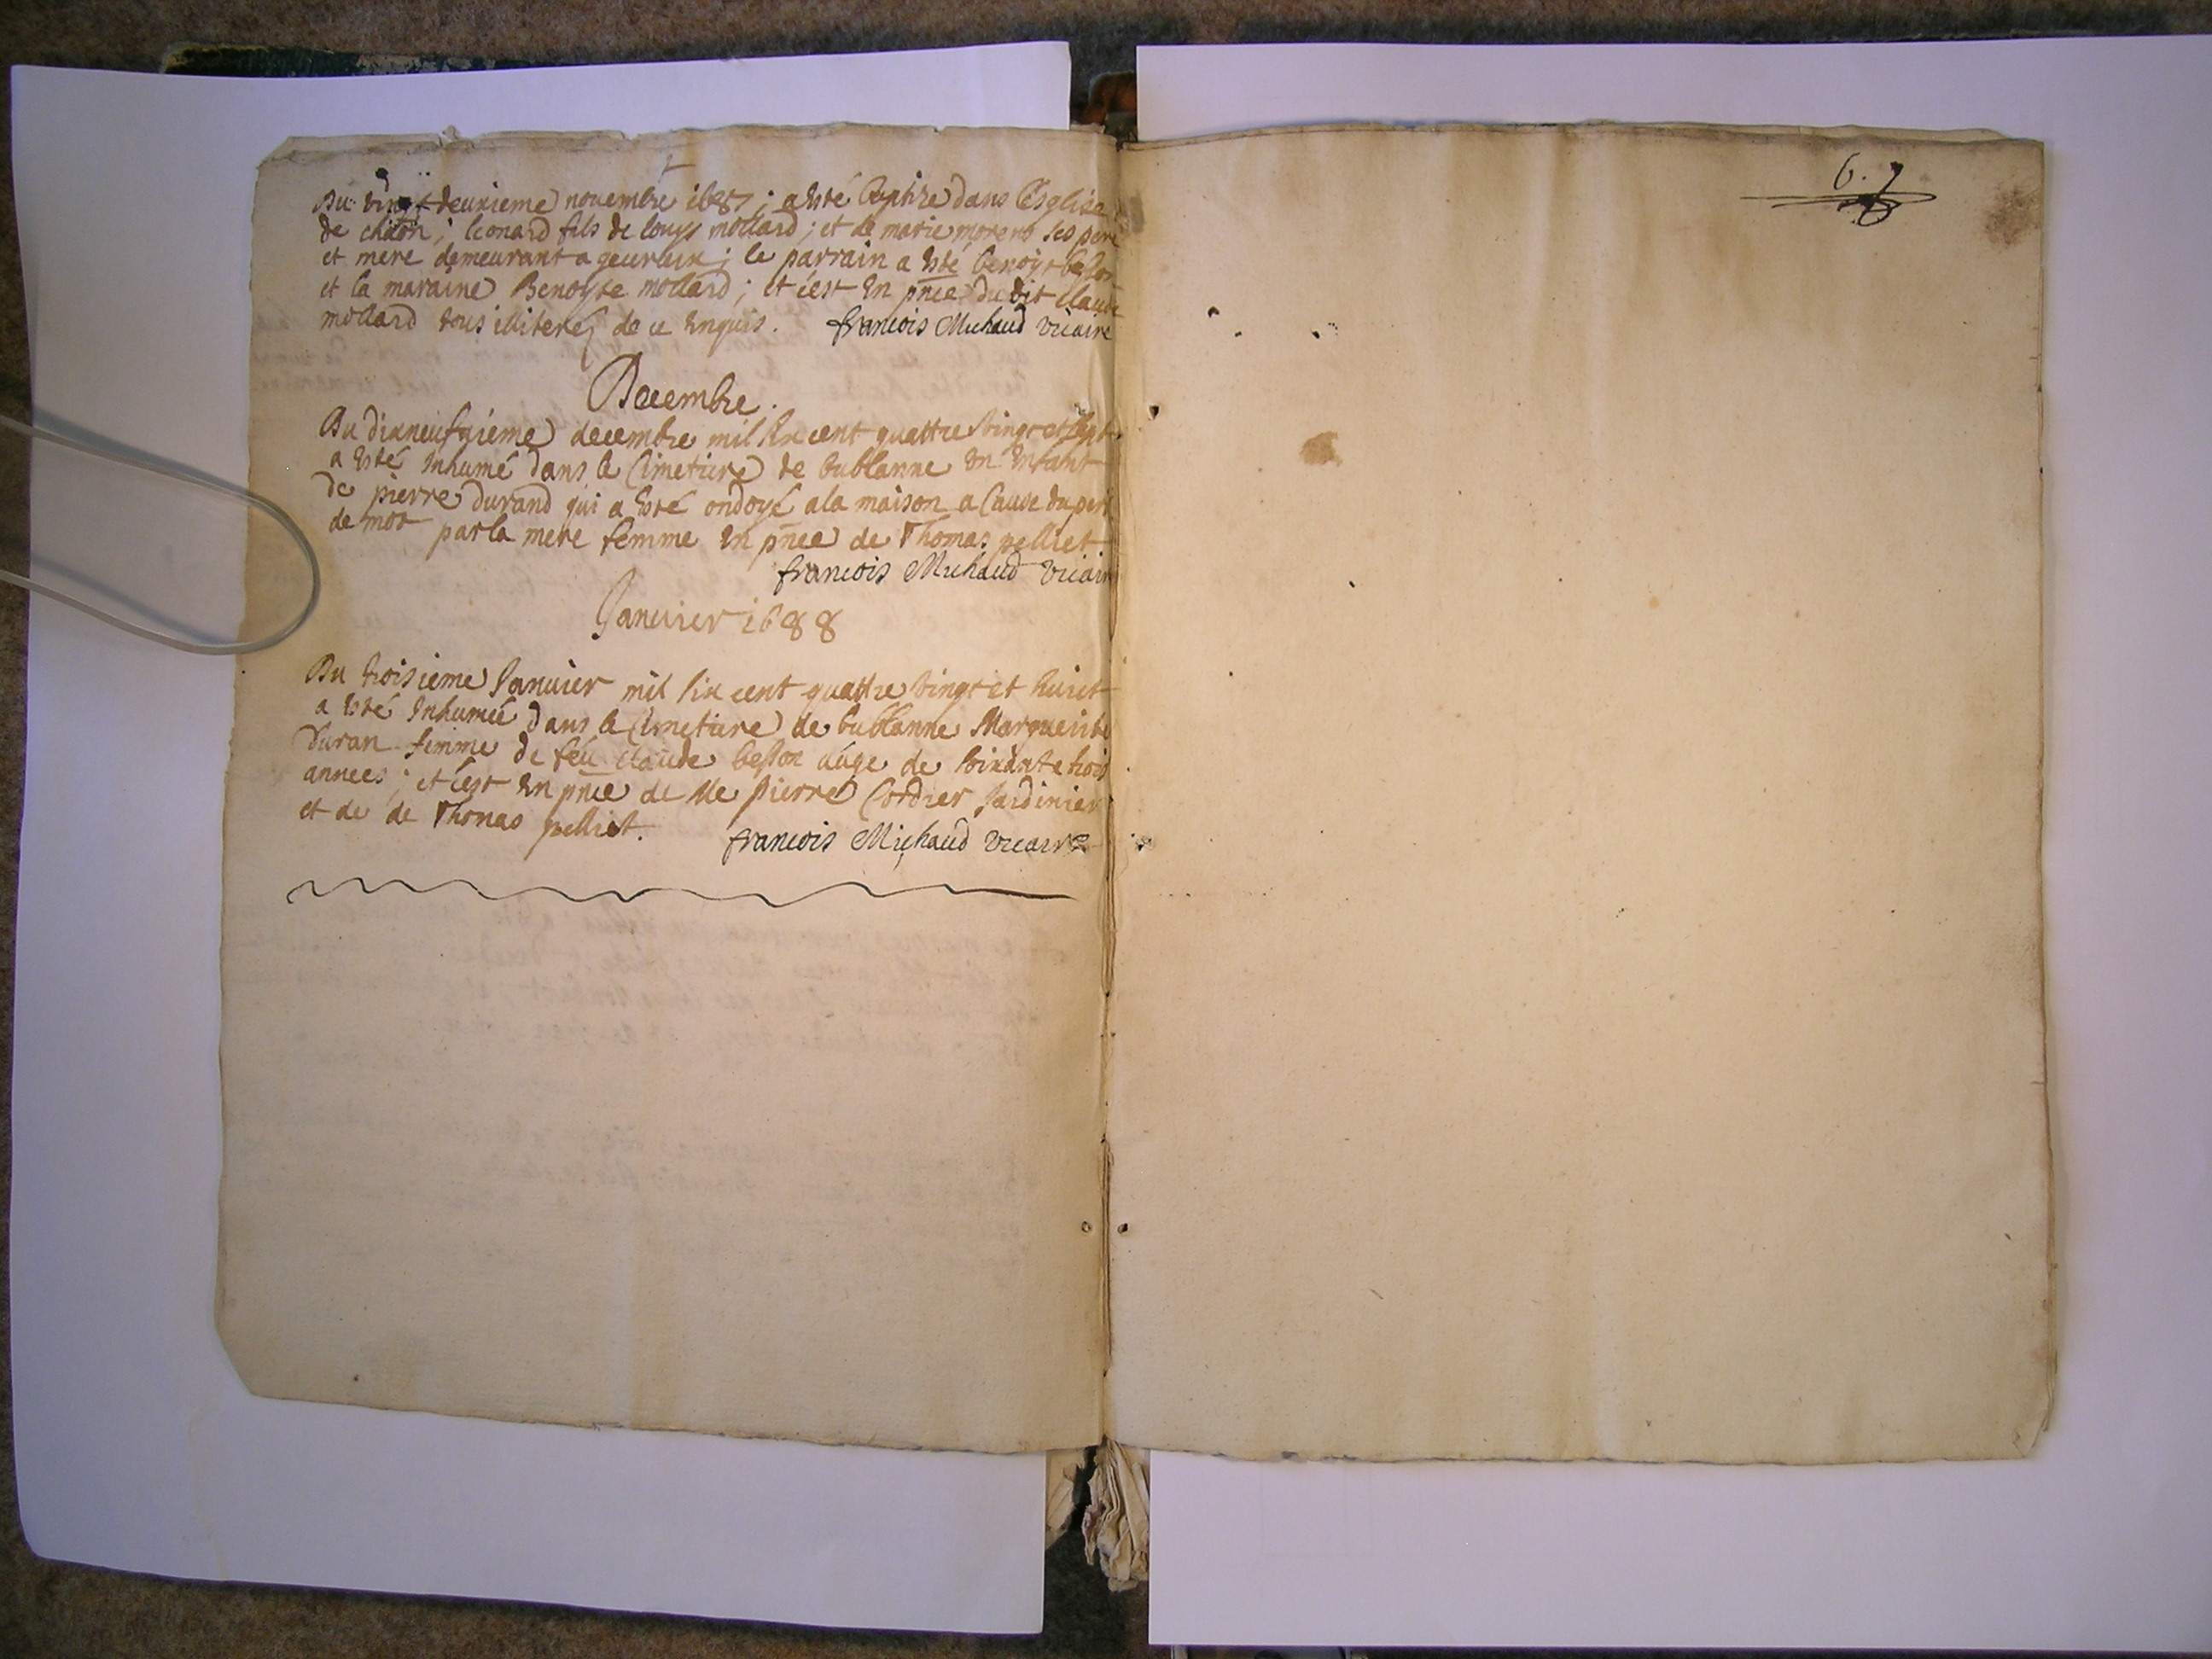 Du vingt deuxieme novembre 1687; a esté baptize dans l'esglise
de chaon; leonard fils de louys mollard; et de marie moreno ses pere
et mere demeurant a geurlux; le parrain a esté benoyt beston
et la maraine Benoyte mollard; et c'est en pñce du dit claude
mollard tous illiterés de ce enquis. francois Michaud vicaire
Decembre.
Du dixneufvieme decembre mil six cent quattre vingt et sept
a esté Inhumé dans le Cimetiere de bublanne un enfant
de pierre durand qui a esté ondoyé a la maison a Cause du peril
de mort par la mere femme en pñce de Thomas pelliet
francois Michaud vicaire
Janvier 1688
Du troisieme Janvier mil six cent quattre vingt et huict
a esté Inhumée dans le Cimetiere de bublanne Marguerite
duran femme de feu claude beston aage de soixante trois
annees; et c'est en pñce de Me pierre Cordier Jardinier
et de de Thomas pelliet. francois Michaud vicaire
6.